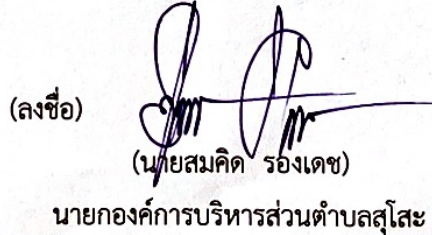 (ลงชื่อ)
(นายสมคิด รองเดช)
นายกองค์การบริหารส่วนตำบลสุโสะ